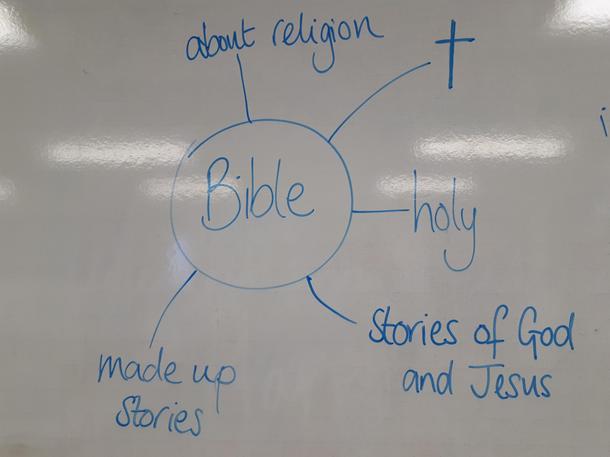 about religion
Bible
holy
Stories of God
and Jesus
made up
Stories